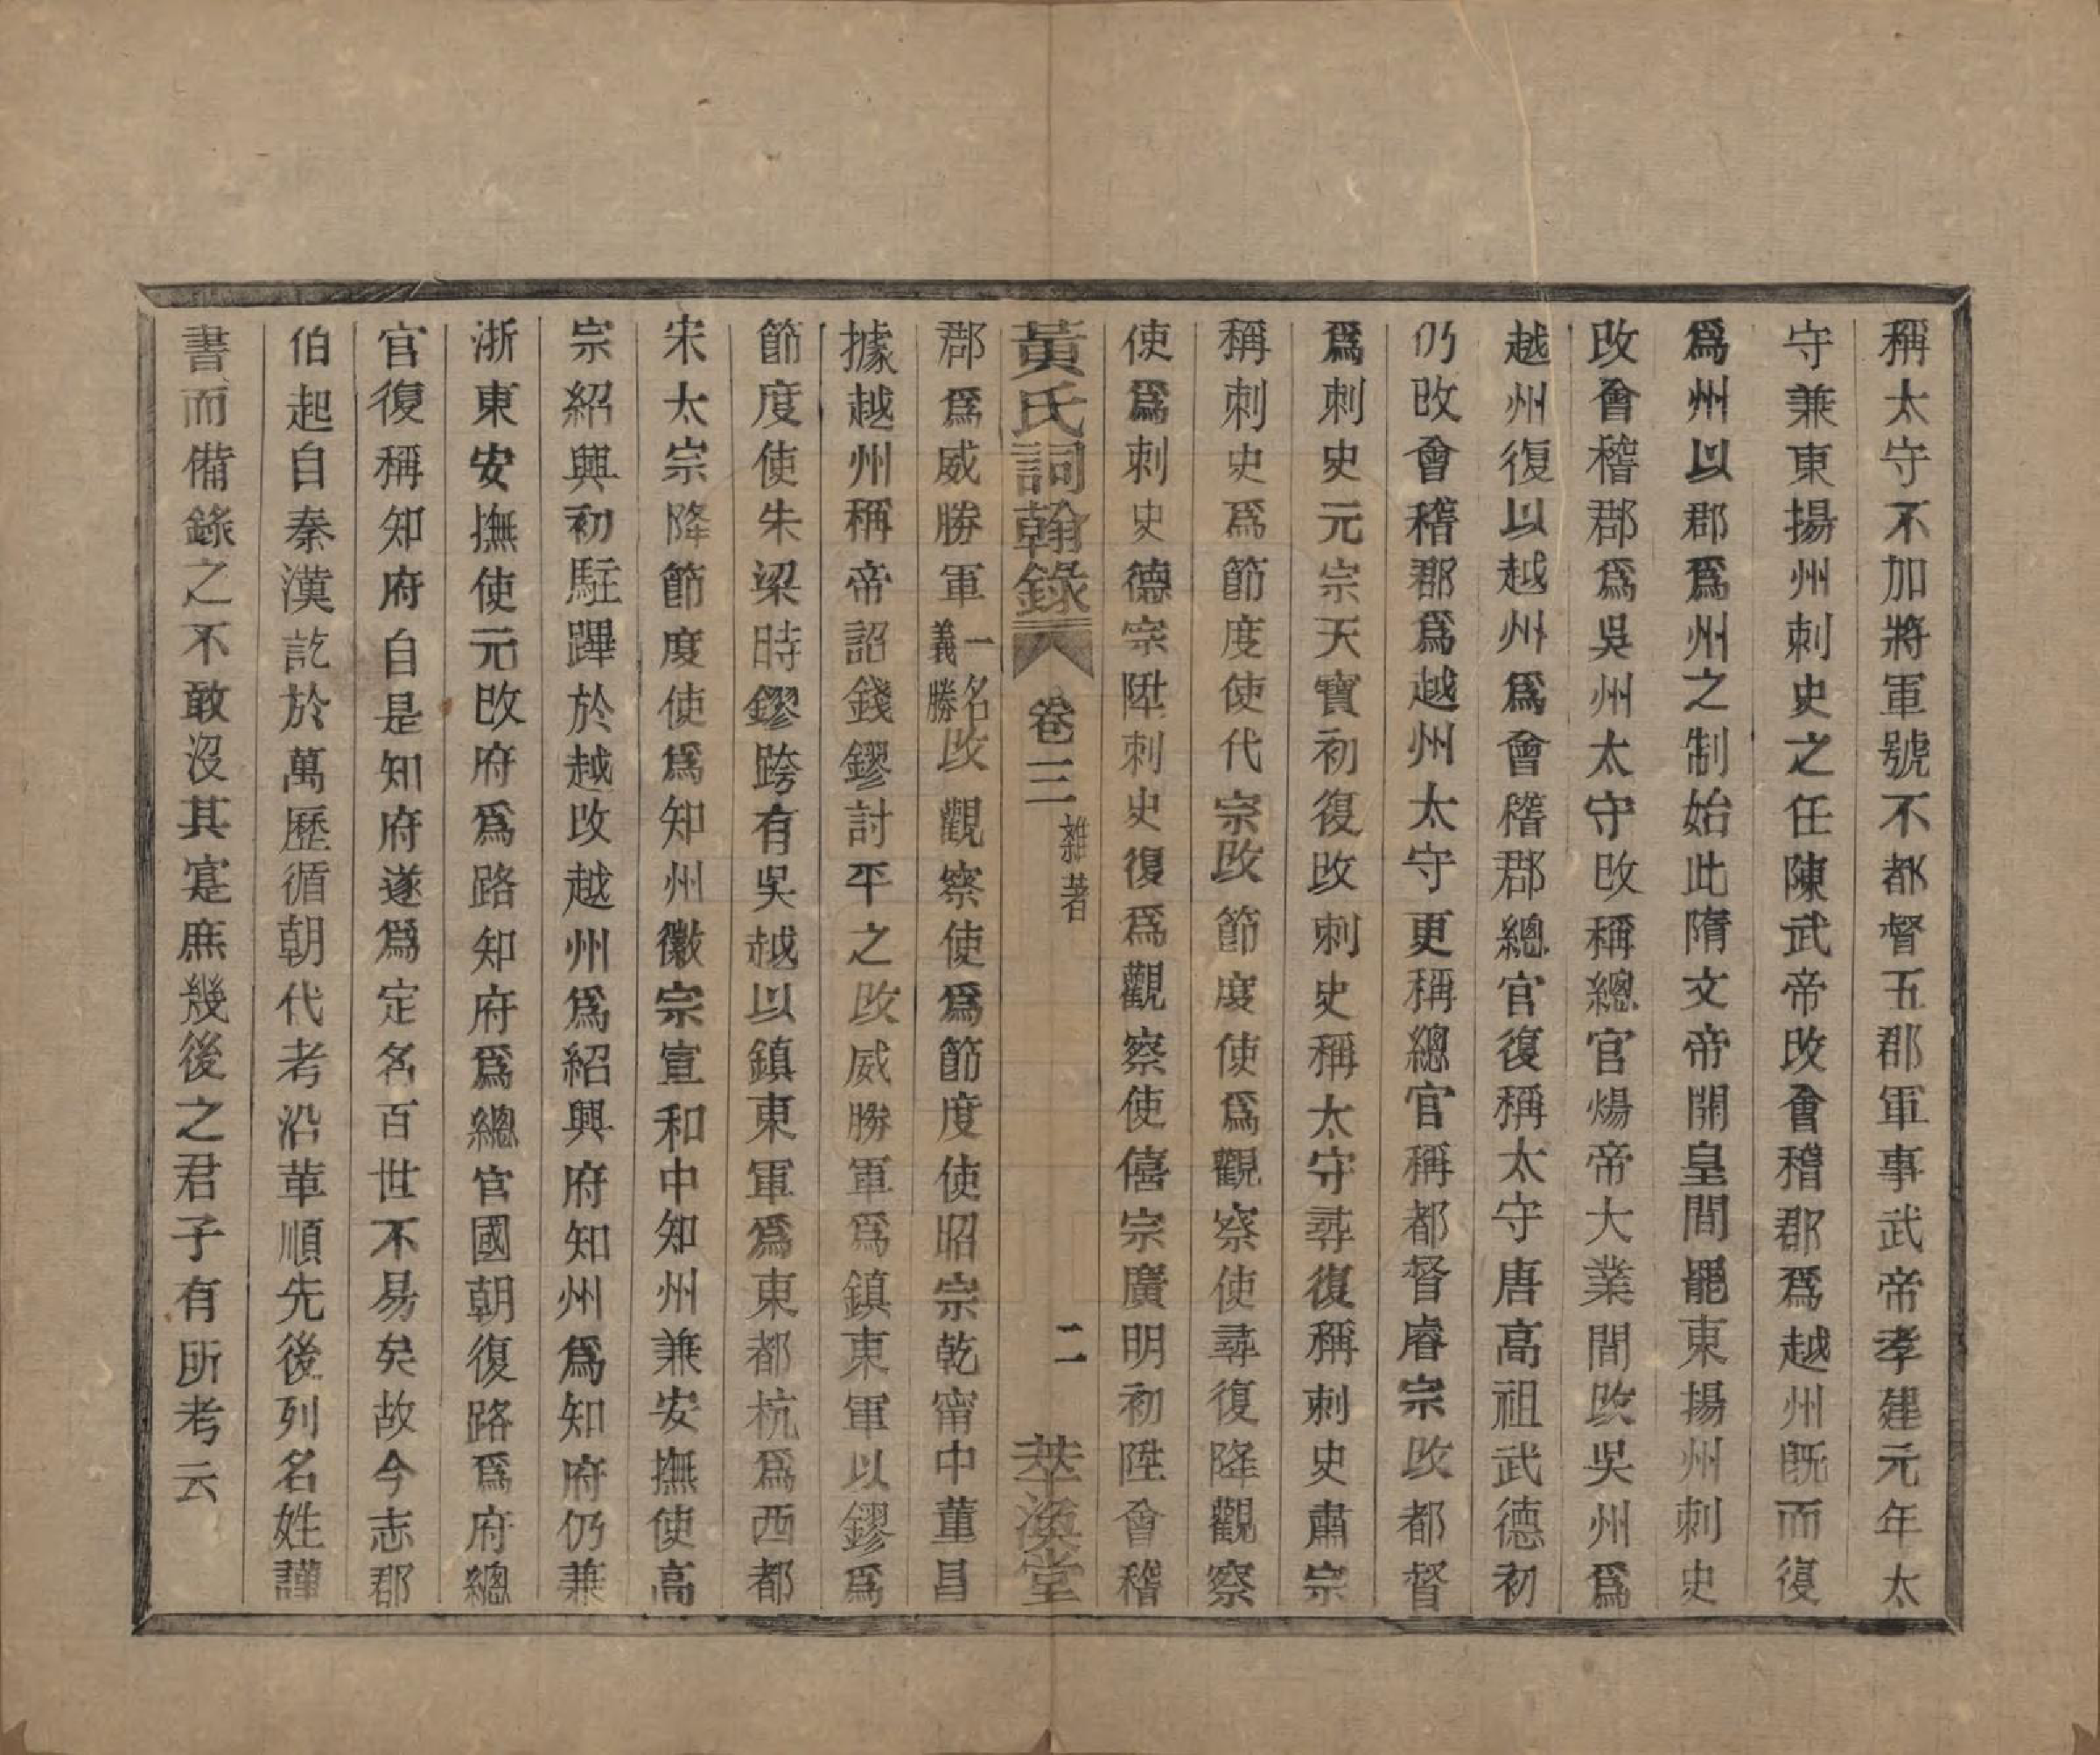 稱太守不加將軍號不都督五郡軍事武帝孝建元年太
守兼東揚州刺史之任陳武帝改會稽郡爲越州既而復
爲州以郡爲州之制始此隋文帝開皇間罷東揚州刺史
改會稽郡爲吳州太守改稱總官煬帝大業間改吳州爲
越州復以越州爲會稽郡總官復稱太守唐高祖武德初
仍改會稽郡爲越州太守更稱總官稱都督睿宗改都督
爲刺史元宗天寶初復改刺史稱太守尋復稱刺史肅宗
稱刺史爲節度使代宗改節度使爲觀察使尋復降觀察
使爲刺史德宗陞刺史復爲觀察使僖宗廣明初陞會稽
黃氏詞翰錄 卷三 雜著 二 萃渙堂
郡爲威勝軍一名義勝改觀察使爲節度使昭宗乾甯中董昌
據越州稱帝詔錢鏐討平之改威勝軍爲鎮東軍以鏐爲
節度使朱梁時鏐跨有吳越以鎮東軍爲東都杭爲西都
宋太宗降節度使爲知州徽宗宣和中知州兼安撫使高
宗紹興初駐蹕於越改越州爲紹興府知州爲知府仍兼
浙東安撫使元改府爲路知府爲總官國朝復路爲府總
官復稱知府自是知府遂爲定名百世不易矣故今志郡
伯起自秦漢訖於萬歷循朝代考沿革順先後列名姓謹
書而備錄之不敢沒其寔庶幾後之君子有所考云